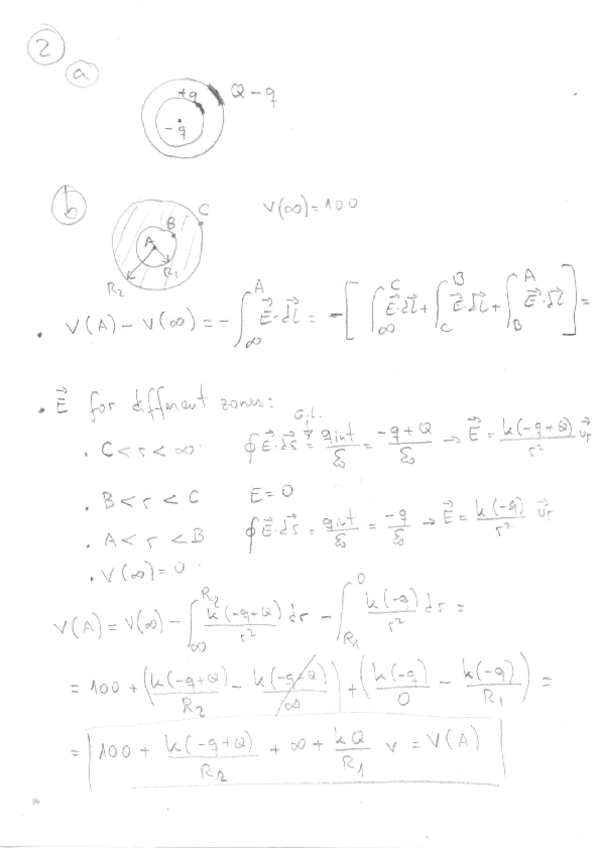 2
a
+q Q-q
-q
b
V(∞)=100
C
B
A
R₁
R₂
• V(A) - V(∞) = -∫_∞^A E⃗·dl⃗ = -[∫_∞^C E⃗·dl⃗ + ∫_C^B E⃗·dl⃗ + ∫_B^A E⃗·dl⃗] =
• E⃗ for different zones:
G.L.
• C < r < ∞ ∮E⃗·ds⃗ = qint/ε₀ = (-q+Q)/ε₀ → E⃗ = k(-q+Q)/r² u⃗r
• B < r < C E=0
• A < r < B ∮E⃗·ds⃗ = qint/ε₀ = -q/ε₀ → E⃗ = k(-q)/r² u⃗r
• V(∞)=0
V(A) = V(∞) - ∫_∞^R₂ k(-q+Q)/r² dr - ∫_R₁^0 k(-q)/r² dr =
= 100 + (k(-q+Q)/R₂ - k(-q+Q)/∞) + (k(-q)/0 - k(-q)/R₁) =
= 100 + k(-q+Q)/R₂ + ∞ + kQ/R₁ v = V(A)